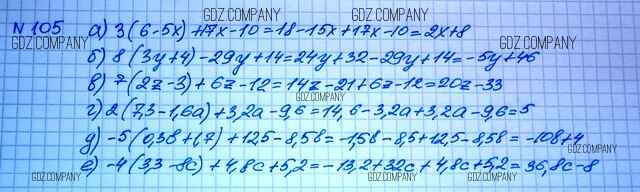 GDZ.COMPANY GDZ.COMPANY
N 105 а) 3(6-5x)+17x-10=18-15x+17x-10=2x+8
GDZ.COMPANY GDZ.COMPANY
б) 8(3y+4)-29y+14=24y+32-29y+14=-5y+46
в) 7(2z-3)+6z-12=14z-21+6z-12=20z-33
GDZ.COMPANY GDZ.COMPANY
г) 2(7,3-1,6a)+3,2a-9,6=14,6-3,2a+3,2a-9,6=5
д) -5(0,3b+1,7)+12,5-8,5b=-1,5b-8,5+12,5-8,5b=-10b+4
GDZ.COMPANY GDZ.COMPANY
е) -4(3,3-8c)+4,8c+5,2=-13,2+32c+4,8c+5,2=36,8c-8
GDZ.COMPANY GDZ.COMPANY GDZ.COMPANY